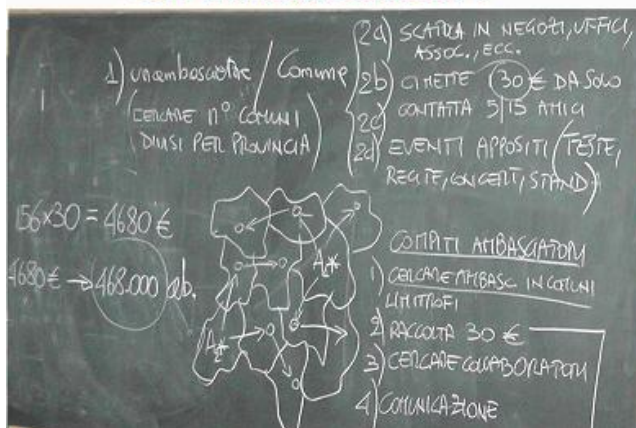 1) unambasciatore / Comune
(CERCARE nº COMUNI
DIVISI PER PROVINCIA)
2a) SCATOLA IN NEGOZI, UFFICI,
ASSOC., ECC.
2b) CI METTE 30 € DA SOLO
2c) CONTATTA 5/15 AMICI
2d) EVENTI APPOSITI (FESTE,
RECITE, CONCERTI, STAND)
156x30 = 4680 €
4680 € → 468.000 ab.
A1*
A2*
COMPITI AMBASCIATORI
1) CERCARE AMBASC. IN COMUNI
LIMITROFI
2) RACCOLTA 30 €
3) CERCARE COLLABORATORI
4) COMUNICAZIONE